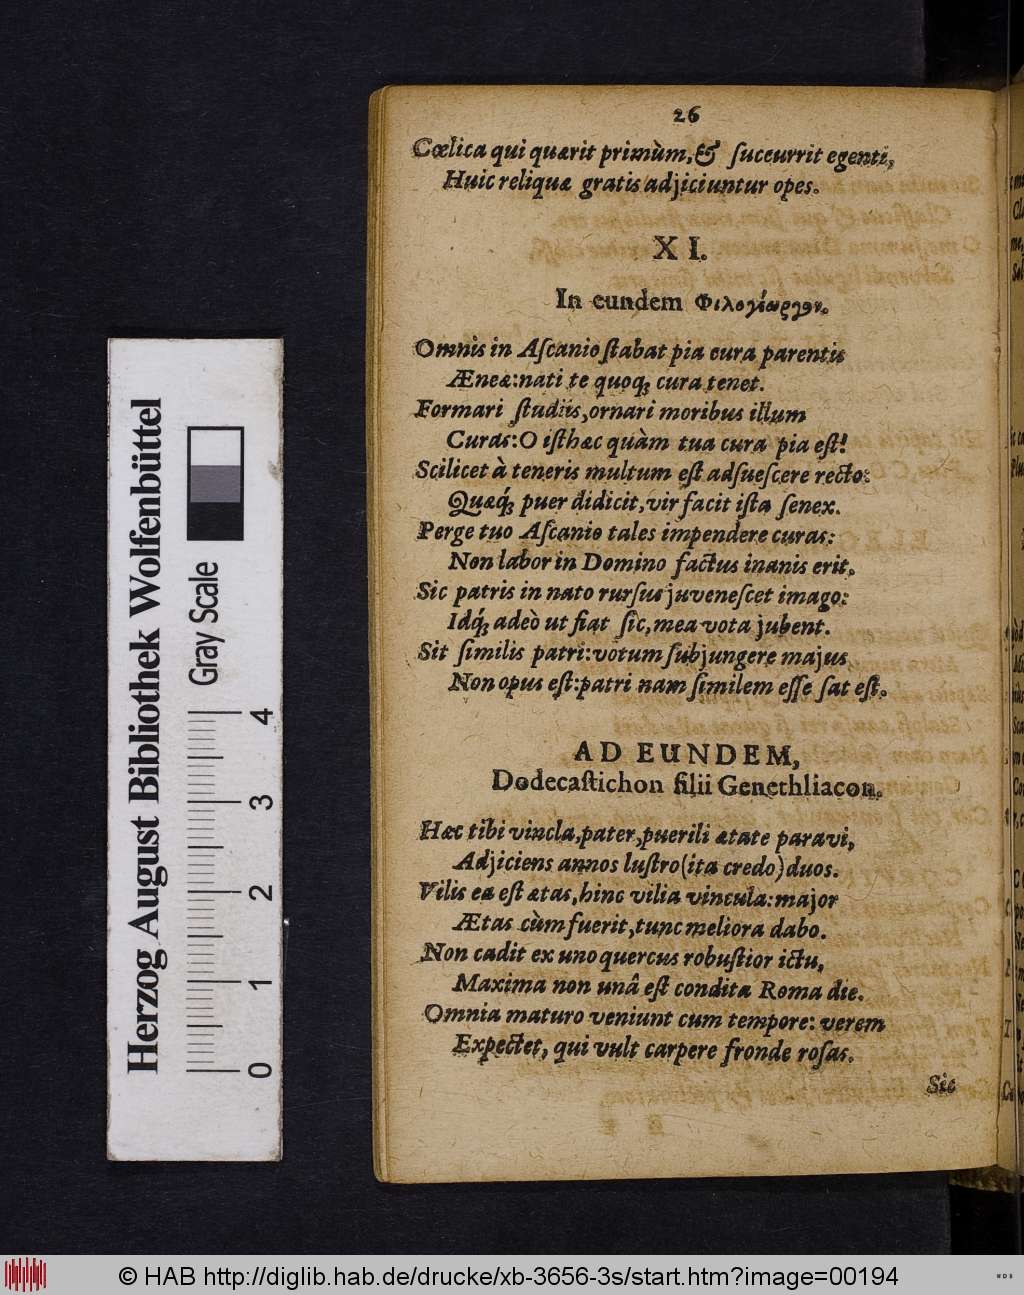 26
Cœlica qui quærit primùm, & ſuccurrit egenti,
Huic reliquæ gratis adjiciuntur opes.
XI.
In eundem
Omnis in Aſcanio ſtabat pia cura parentis
Æneæ: nati te quoq; cura tenet.
Formari ſtudiis, ornari moribus illum
Curas: O iſthæc quàm tua cura pia eſt!
Scilicet à teneris multum eſt adſueſcere recto:
Quæq́; puer didicit, vir facit iſta ſenex.
Perge tuo Aſcanio tales impendere curas:
Non labor in Domino factus inanis erit.
Sic patris in nato rurſus juveneſcet imago:
Idq́; adeò ut fiat ſic, mea vota jubent.
Sit ſimilis patri: votum ſubjungere majus
Non opus eſt: patri nam ſimilem eſſe ſat eſt.
AD EUNDEM,
Dodecaſtichon filii Genethliacon.
Hæc tibi vincla, pater, puerili ætate paravi,
Adjiciens annos luſtro (ita credo) duos.
Vilis ea eſt ætas, hinc vilia vincula: major
Ætas cùm fuerit, tunc meliora dabo.
Non cadit ex uno quercus robuſtior ictu,
Maxima non unâ eſt condita Roma die.
Omnia maturo veniunt cum tempore: verem
Expectet, qui vult carpere fronde roſas.
Sic
Herzog August Bibliothek Wolfenbüttel
Gray Scale
0 1 2 3 4
© HAB http://diglib.hab.de/drucke/xb-3656-3s/start.htm?image=00194